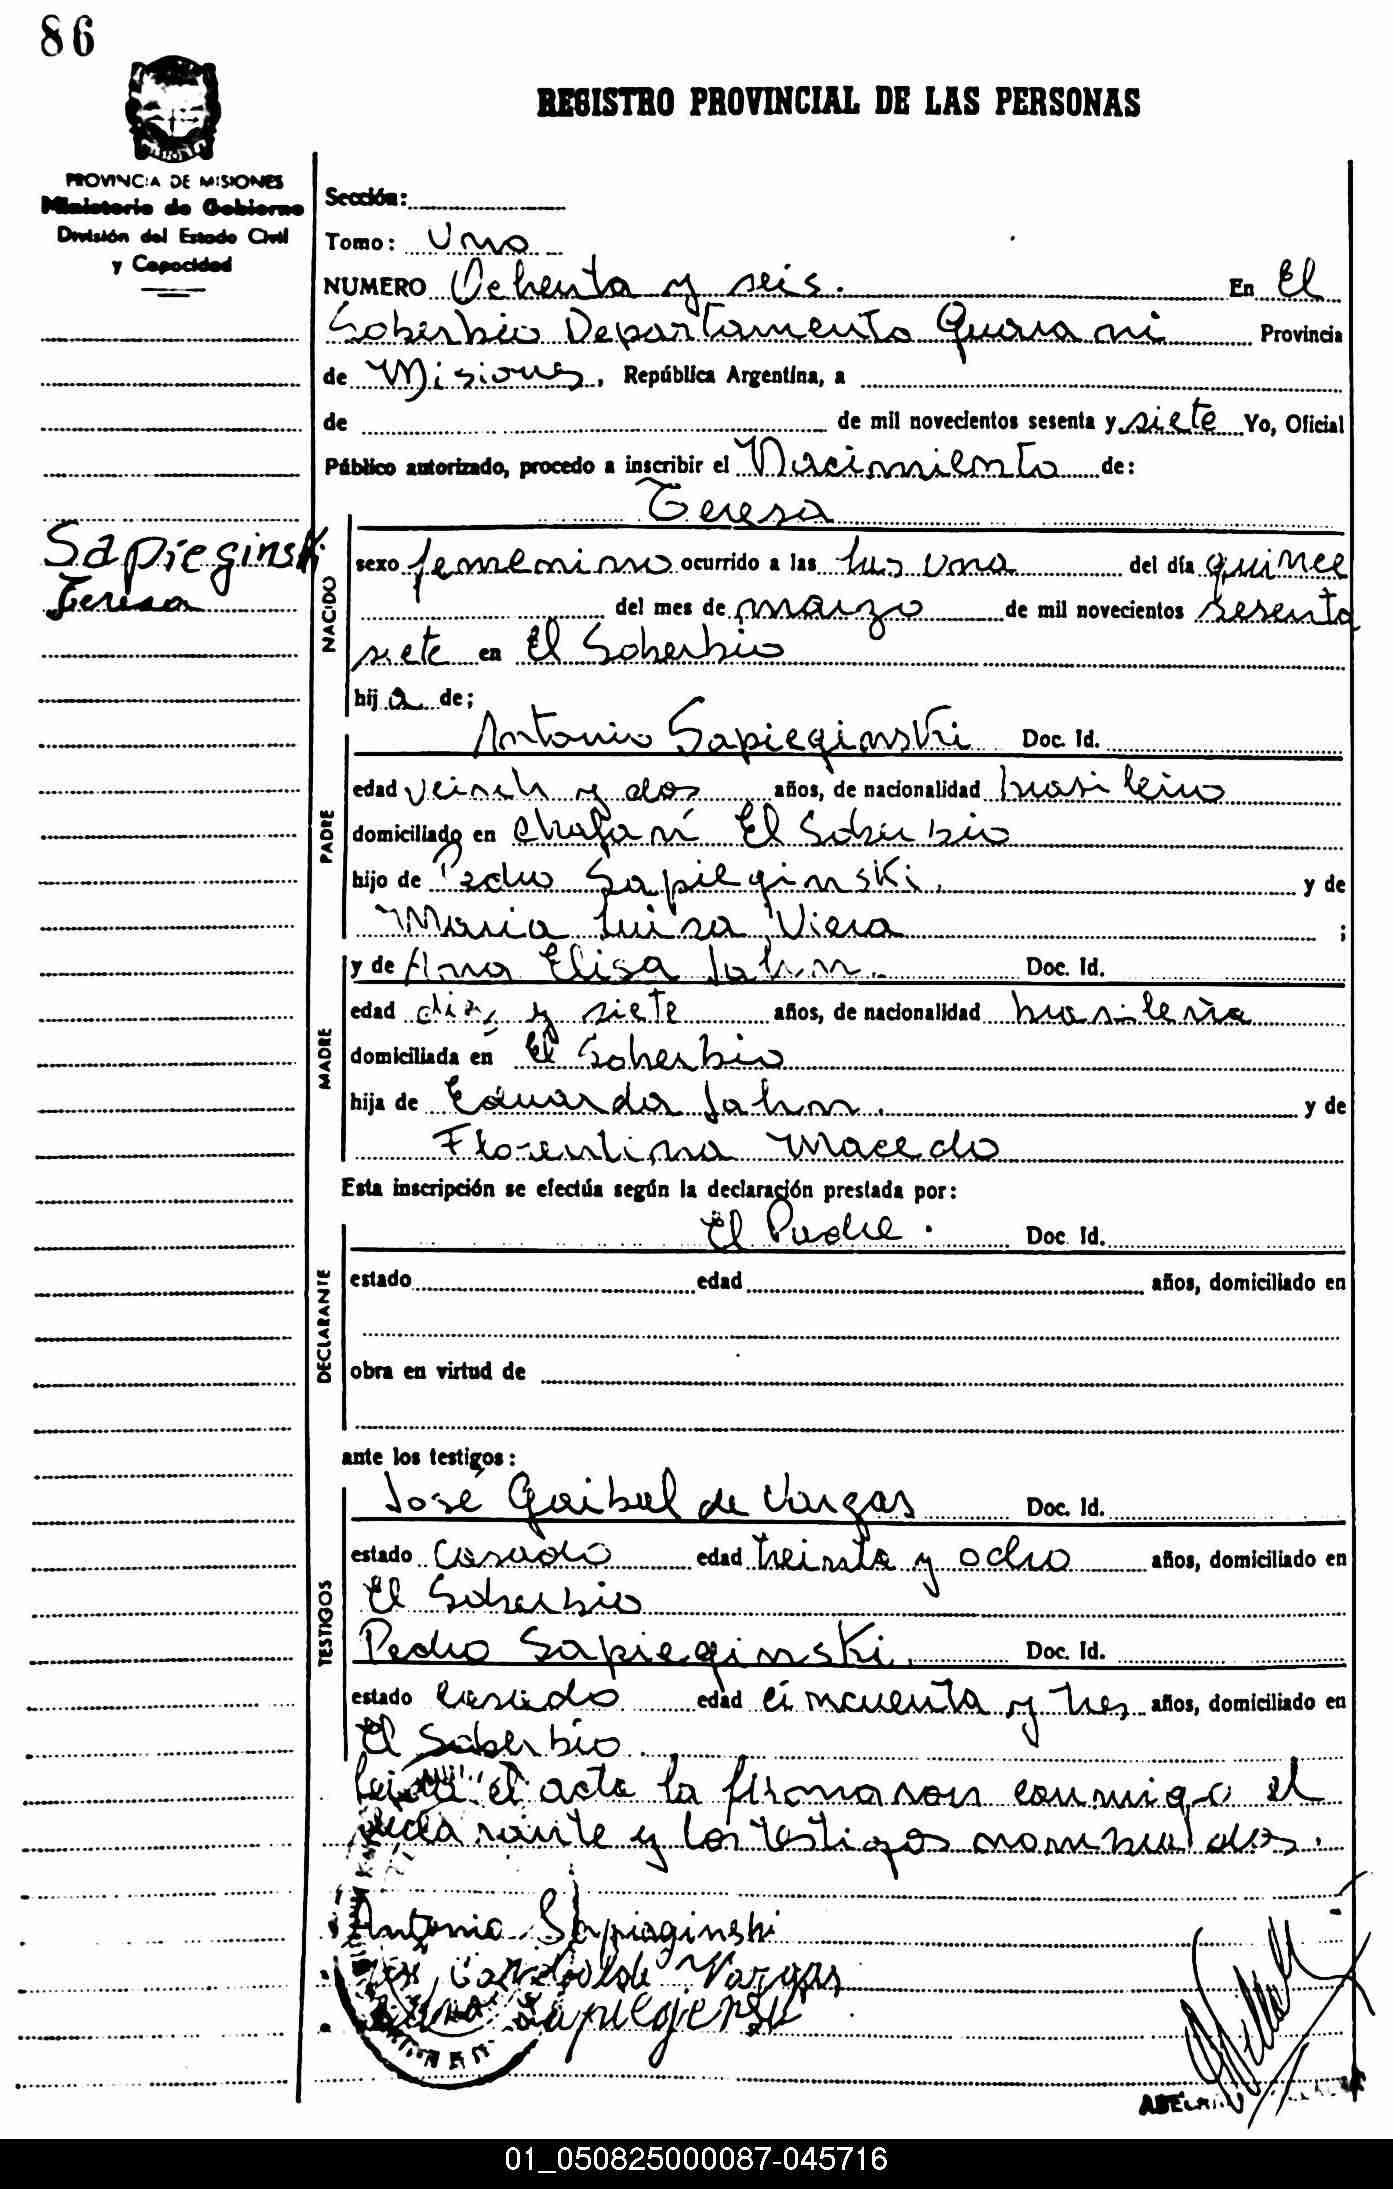 86
REGISTRO PROVINCIAL DE LAS PERSONAS
PROVINCIA DE MISIONES
Ministerio de Gobierno
División del Estado Civil
y Capacidad
Sección:
Tomo: Uno
NUMERO Ochenta y seis. En El
Soberbio Departamento Guarani Provincia
de Misiones, República Argentina, a
de de mil novecientos sesenta y siete Yo, Oficial
Público autorizado, procedo a inscribir el Nacimiento de:
Teresa
Sapieginski
Teresa
NACIDO
sexo femenino ocurrido a las las una del día quince
del mes de marzo de mil novecientos sesenta
siete en El Soberbio
hija de;
PADRE
Antonio Sapieginski Doc. Id.
edad veinte y dos años, de nacionalidad brasileino
domiciliado en El Soberbio
hijo de Pedro Sapieginski. y de
Maria Luisa Viera ;
MADRE
y de Ana Elisa Jahn. Doc. Id.
edad diez y siete años, de nacionalidad brasileña
domiciliada en El Soberbio
hija de Eduardo Jahn. y de
Florentina Macedo
Esta inscripción se efectúa según la declaración prestada por:
DECLARANTE
El Padre. Doc. Id.
estado edad años, domiciliado en
obra en virtud de
ante los testigos:
TESTIGOS
José de Vargas Doc. Id.
estado casado edad treinta y ocho años, domiciliado en
El Soberbio
Pedro Sapieginski. Doc. Id.
estado casado edad cincuenta y tres años, domiciliado en
El Soberbio.
Leida el acta la firmaron conmigo el
declarante y los testigos nombrados.
Antonio Sapieginski
Vargas
01_050825000087-045716